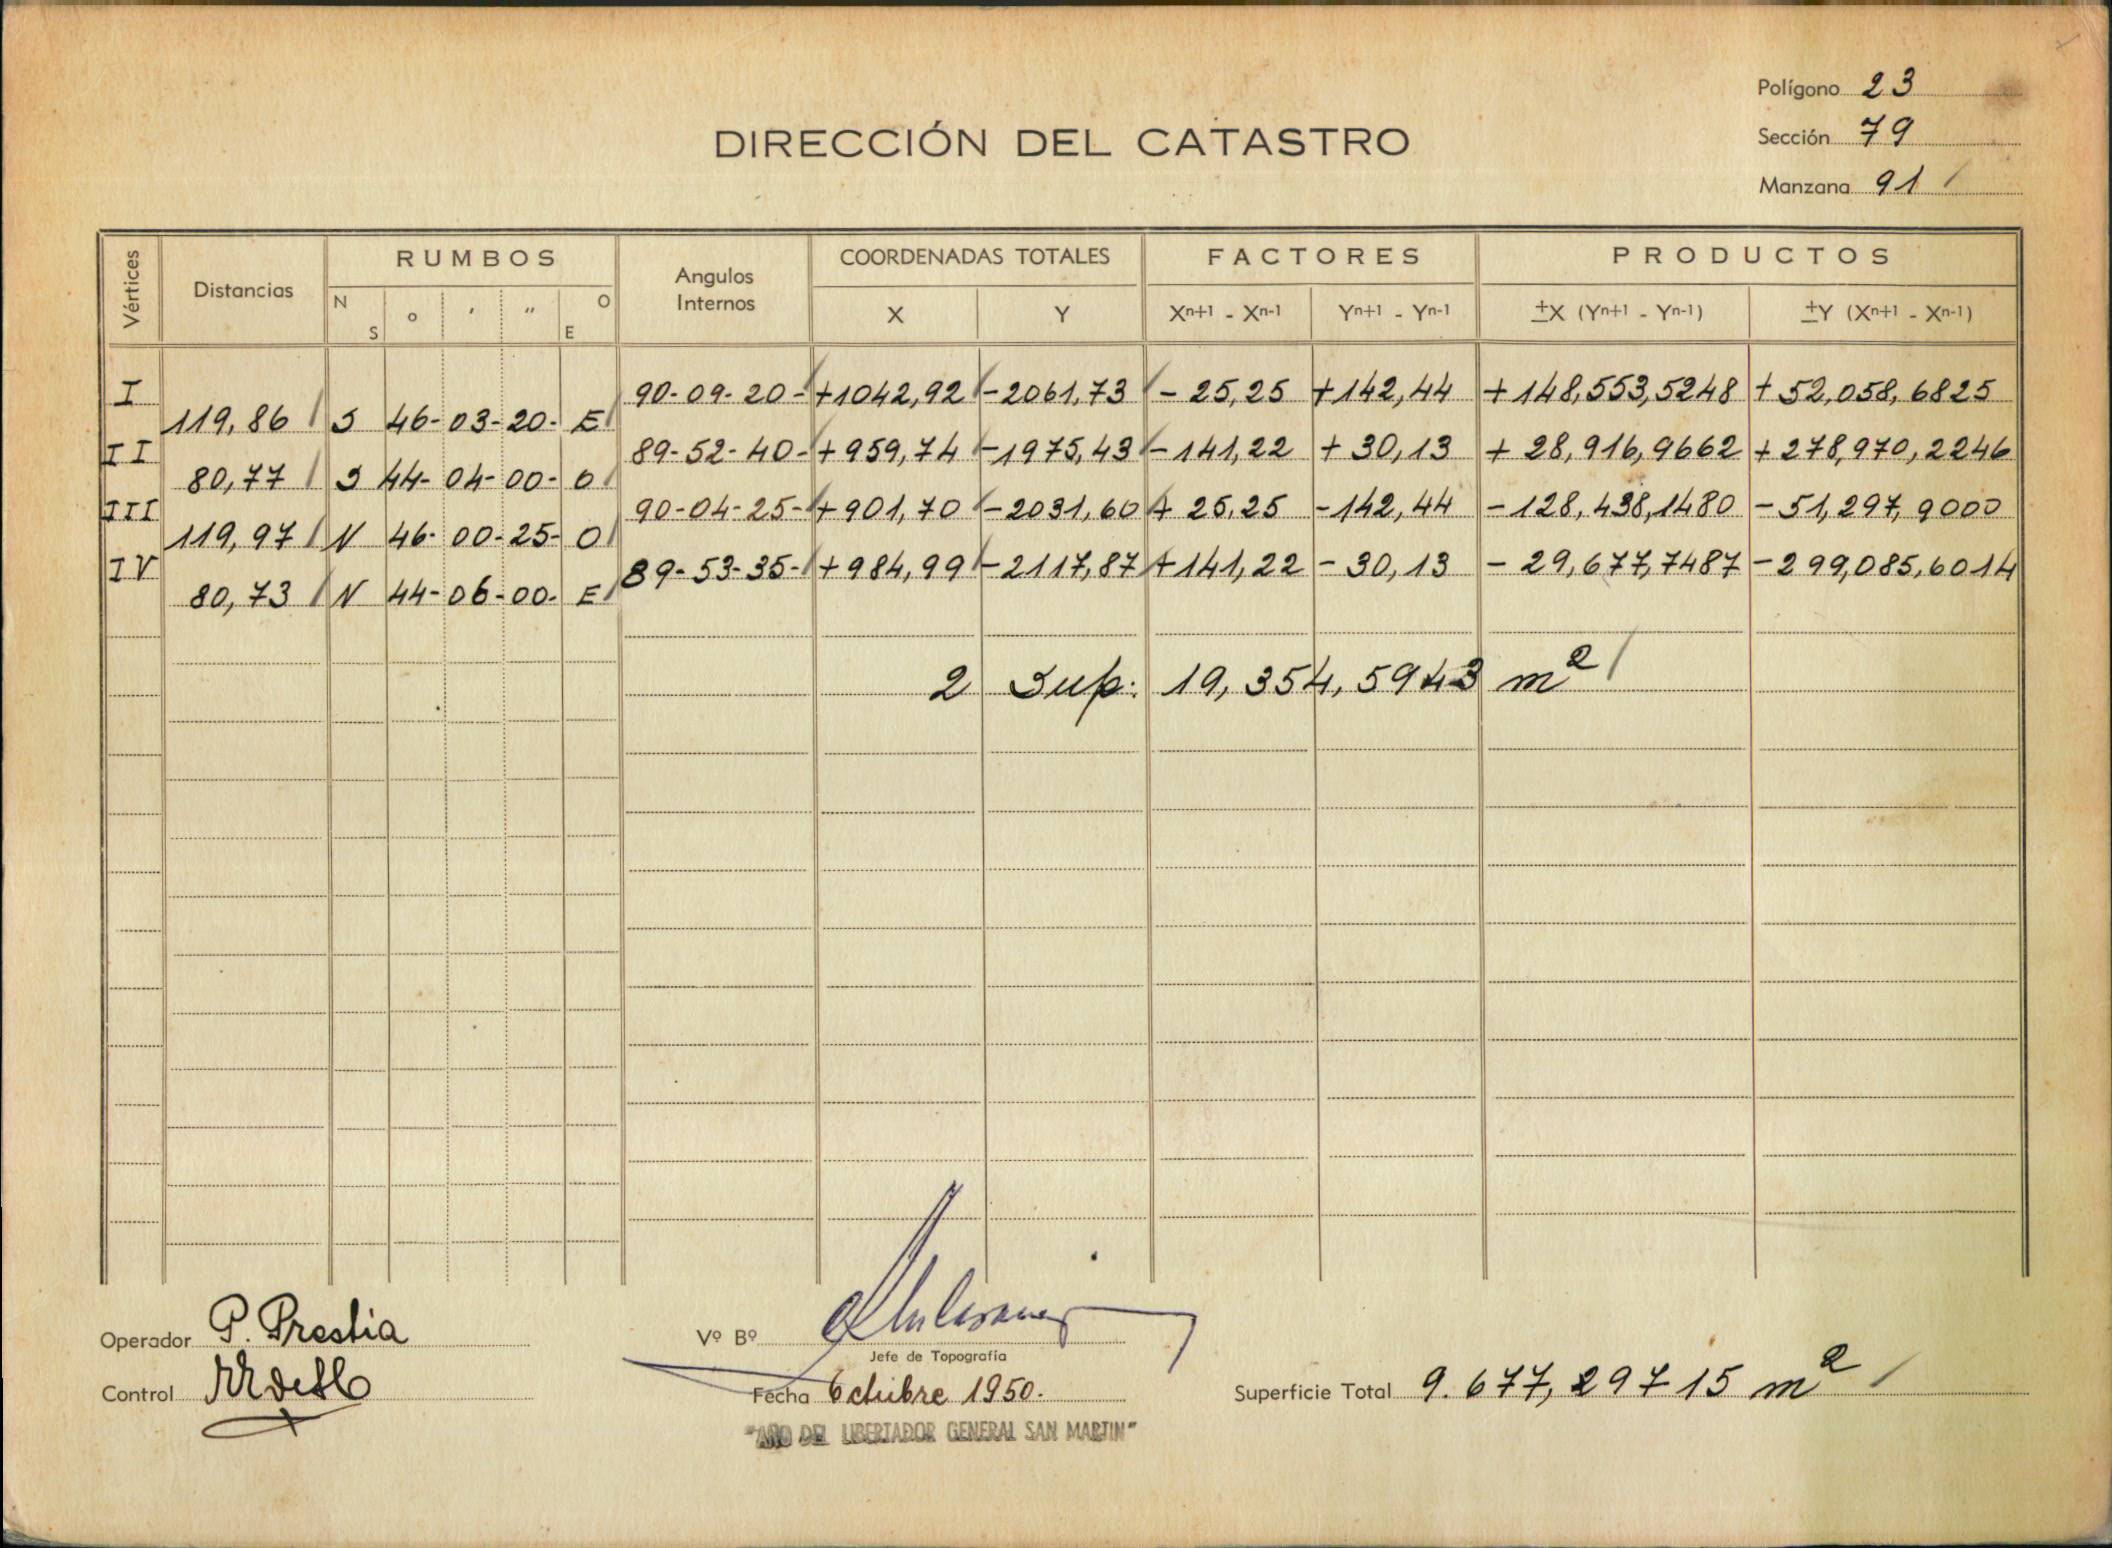 Polígono 23
DIRECCIÓN DEL CATASTRO
Sección 79
Manzana 91
Vértices Distancias RUMBOS Angulos Internos COORDENADAS TOTALES FACTORES PRODUCTOS
N S o ' " O E X Y Xn+1 - Xn-1 Yn+1 - Yn-1 ±X (Yn+1 - Yn-1) ±Y (Xn+1 - Xn-1)
I 90-09-20- +1042,92 -2061,73 - 25,25 +142,44 +148,553,5248 + 52,058,6825
119,86 S 46-03-20- E
II 89-52-40- +959,74 -1975,43 -141,22 + 30,13 + 28,916,9662 + 278,970,2246
80,77 S 44-04-00- O
III 90-04-25- +901,70 -2031,60 + 25,25 -142,44 -128,438,1480 -51,297,9000
119,97 N 46-00-25- O
IV 89-53-35- +984,99 -2117,87 +141,22 - 30,13 - 29,677,7487 -299,085,6014
80,73 N 44-06-00- E
2 Sup: 19,354,5943 m2
Operador P. Prestia
Vº Bº
Jefe de Topografía
Control
Fecha Octubre 1950.
Superficie Total 9.677,29715 m2
"AÑO DEL LIBERTADOR GENERAL SAN MARTIN"